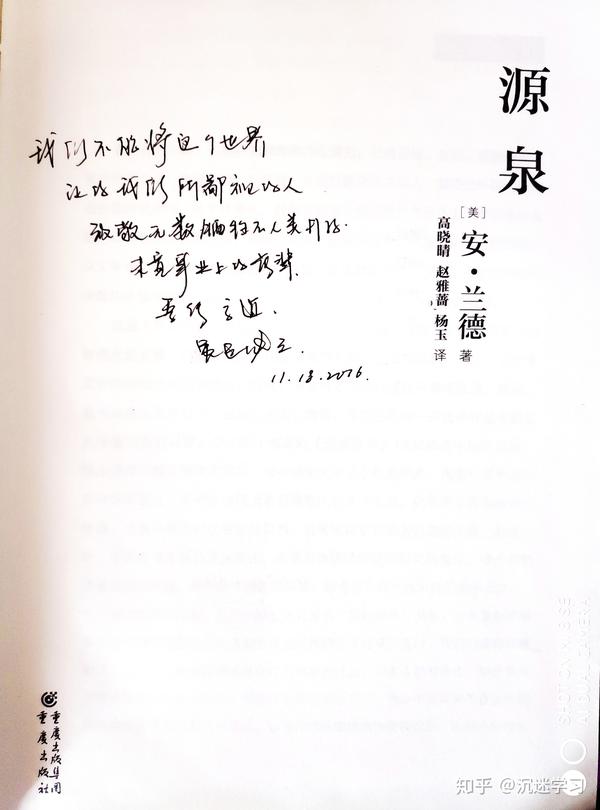 源泉
[美]安·兰德 著
高晓晴 赵雅蔷 杨玉 译
我们不能将这个世界
让给我们所鄙视的人
致敬无数牺牲 人类
未竟事业上的前辈.
11.18.2016.
重庆出版集团
重庆出版社
SHOT ON
AI DUAL CAMERA
知乎 @沉迷学习